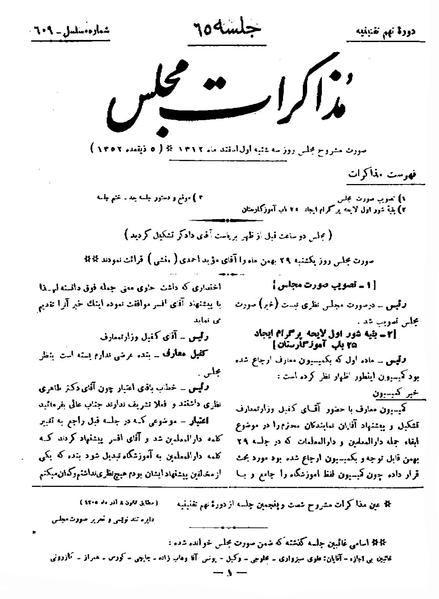 دورهٔ نهم تقنینیه
جلسه ۶۵
شماره مسلسل ـ ۶۰۹
مذاکرات مجلس
صورت مشروح مجلس روز سه شنبه اول اسفند ماه ۱۳۱۲ * (۵ ذیقعده ۱۳۵۲)
فهرست مذاکرات
۱) تصویب صورت مجلس
۲) بقیهٔ شور اول لایحه پرگرام ایجاد ۲۵ باب آموزگارستان
۳) موقع و دستور جلسه بعد ـ ختم جلسه
(مجلس دو ساعت قبل از ظهر بریاست آقای دادگر تشکیل گردید)
صورت مجلس روز یکشنبه ۲۹ بهمن ماه را آقای مؤید احمدی (منشی) قرائت نمودند **
[۱ ـ تصویب صورت مجلس]
رئیس ـ در صورت مجلس نظری نیست (خیر) صورت
مجلس تصویب شد.
[۲ـ بقیه شور اول لایحه پرگرام ایجاد
۲۵ باب آموزگارستان]
رئیس ـ ماده اول که بکمیسیون معارف ارجاع شده
بود کمیسیون اینطور اظهار نظر کرده است:
خبر کمیسیون
کمیسیون معارف با حضور آقای کفیل وزارتمعارف
تشکیل و پیشنهاد آقایان نمایندگان محترم را در موضوع
ابقاء جمله دارالمعلمین و دارالمعلمات که در جلسه ۲۹
بهمن قابل توجه و بکمیسیون ارجاع شده بود مورد بحث
قرار داده چون کمیسیون لفظ آموزشگاه را جامع و با
اختصاری که داشت حاوی معنی جمله فوق دانسته لذا
با پیشنهاد آقای افسر موافقت نموده اینك خبر آنرا تقدیم
می نماید
رئیس ـ آقای کفیل وزارتمعارف
کفیل معارف ـ بنده عرضی ندارم بسته است بنظر
مجلس
رئیس ـ خطاب باقای اعتبار چون آقای دکتر طاهری
نظری داشتند و فعلا تشریف ندارند جناب عالی بفرمائید
اعتبار ـ موضوعی که در جلسه قبل راجع به تغییر
کلمه دارالمعلمین شد و آقای افسر پیشنهاد کردند که
کلمه دارالمعلمین به آموزشگاه تبدیل شود بنده که یکی
از مخالفین پیشنهاد ایشان بودم هیچ نظری نداشتم و گمان میکنم
* عین مذاکرات مشروح شصت و پنجمین جلسه از دورهٔ نهم تقنینیه
(مطابق قانون ۸ آذر ماه ۱۳۰۵)
دایره تند نویسی و تحریر صورت مجلس
** اسامی غائبین جلسه گذشته که ضمن صورت مجلس خوانده شده:
غائبین بی اجازه ـ آقایان: علوی سبزواری ـ
ـ وکیل ـ یونس آقا وهاب زاده ـ چایچی ـ کورس ـ همراز ـ کازرونی
ـ ۱ ـ